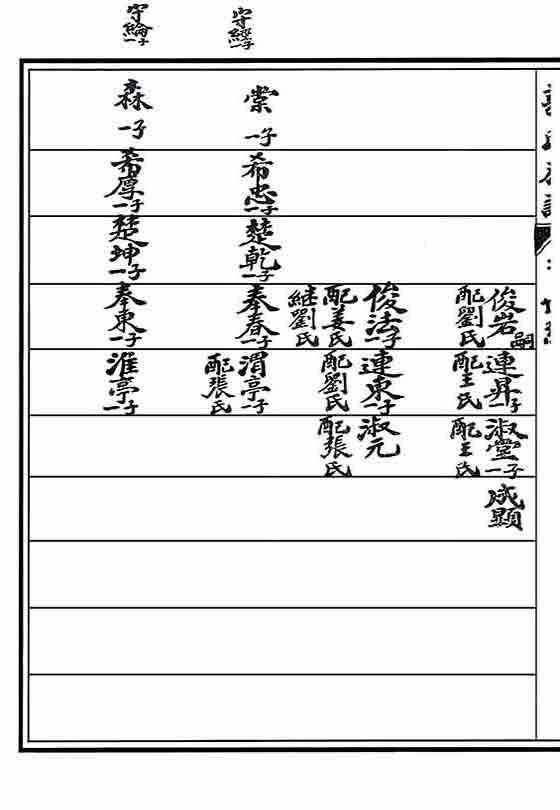 俊岩嗣
配劉氏
連昇一子
配王氏
淑堂一子
配王氏
成顯
俊法一子
配姜氏
継劉氏
連東一子
配劉氏
淑元
配張氏
守經一子
棠一子
希忠一子
楚乾一子
奉春一子
渭亭一子
配張氏
守綸一子
森一子
希厚一子
楚坤一子
奉東一子
淮亭一子